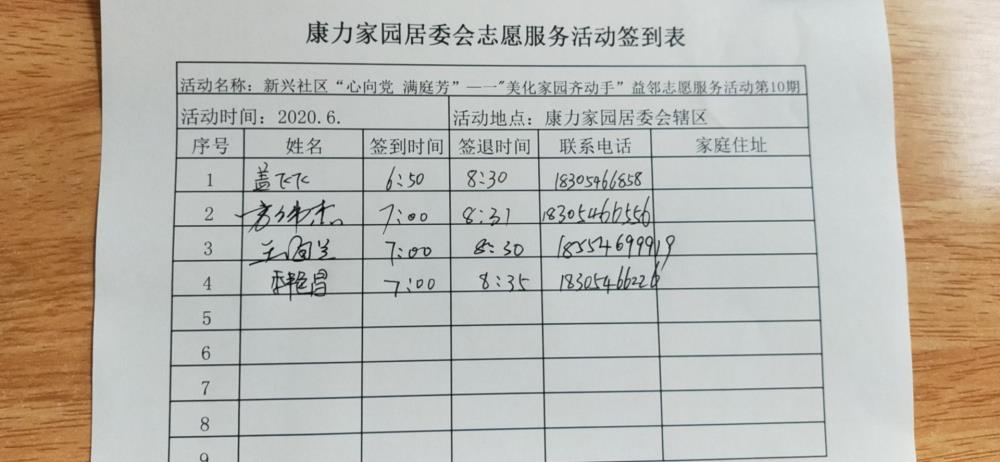 康力家园居委会志愿服务活动签到表
活动名称：新兴社区“心向党 满庭芳”—一"美化家园齐动手”益邻志愿服务活动第10期
活动时间：2020.6. 活动地点：康力家园居委会辖区
序号 姓名 签到时间 签退时间 联系电话 家庭住址
1 盖飞飞 6:50 8:30 18305466858
2 7:00 8:31 18305466556
3 7:00 8:30 18554699919
4 7:00 8:35 18305466226
5
6
7
8
9